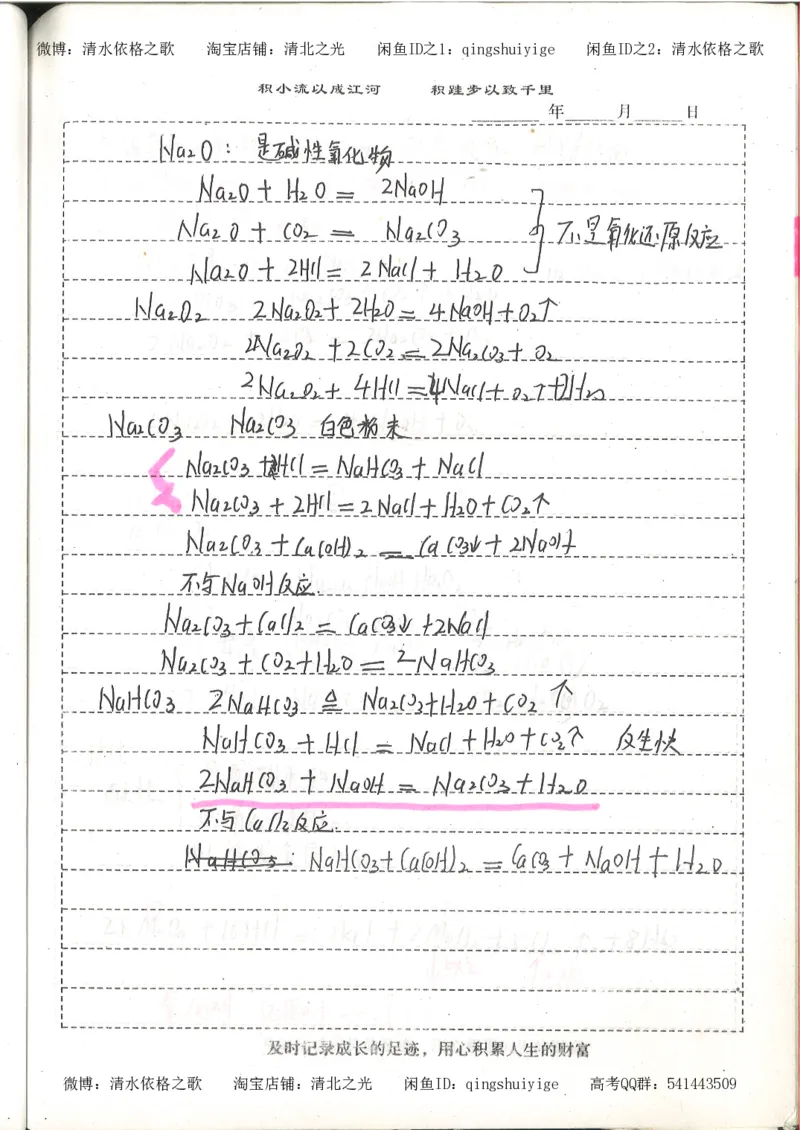 微博：清水依格之歌 淘宝店铺：清北之光 闲鱼ID之1：qingshuiyige 闲鱼ID之2：清水依格之歌
积小流以成江河 积跬步以致千里
年 月 日
Na₂O：是碱性氧化物
Na₂O + H₂O = 2NaOH
Na₂O + CO₂ = Na₂CO₃ 不是氧化还原反应
Na₂O + 2HCl = 2NaCl + H₂O
Na₂O₂ 2Na₂O₂ + 2H₂O = 4NaOH + O₂↑
2Na₂O₂ + 2CO₂ = 2Na₂CO₃ + O₂
2Na₂O₂ + 4HCl = 4NaCl + O₂↑ + 2H₂O
Na₂CO₃ Na₂CO₃ 白色粉末
Na₂CO₃ + HCl = NaHCO₃ + NaCl
Na₂CO₃ + 2HCl = 2NaCl + H₂O + CO₂↑
Na₂CO₃ + Ca(OH)₂ = CaCO₃↓ + 2NaOH
不与NaOH反应.
Na₂CO₃ + CaCl₂ = CaCO₃↓ + 2NaCl
Na₂CO₃ + CO₂ + H₂O = 2NaHCO₃
NaHCO₃ 2NaHCO₃ ≜ Na₂CO₃ + H₂O + CO₂↑
NaHCO₃ + HCl = NaCl + H₂O + CO₂↑ 反生快
2NaHCO₃ + NaOH = Na₂CO₃ + H₂O
不与CaCl₂反应.
NaHCO₃: NaHCO₃ + Ca(OH)₂ = CaCO₃ + NaOH + H₂O
及时记录成长的足迹，用心积累人生的财富
微博：清水依格之歌 淘宝店铺：清北之光 闲鱼ID：qingshuiyige 高考QQ群：541443509